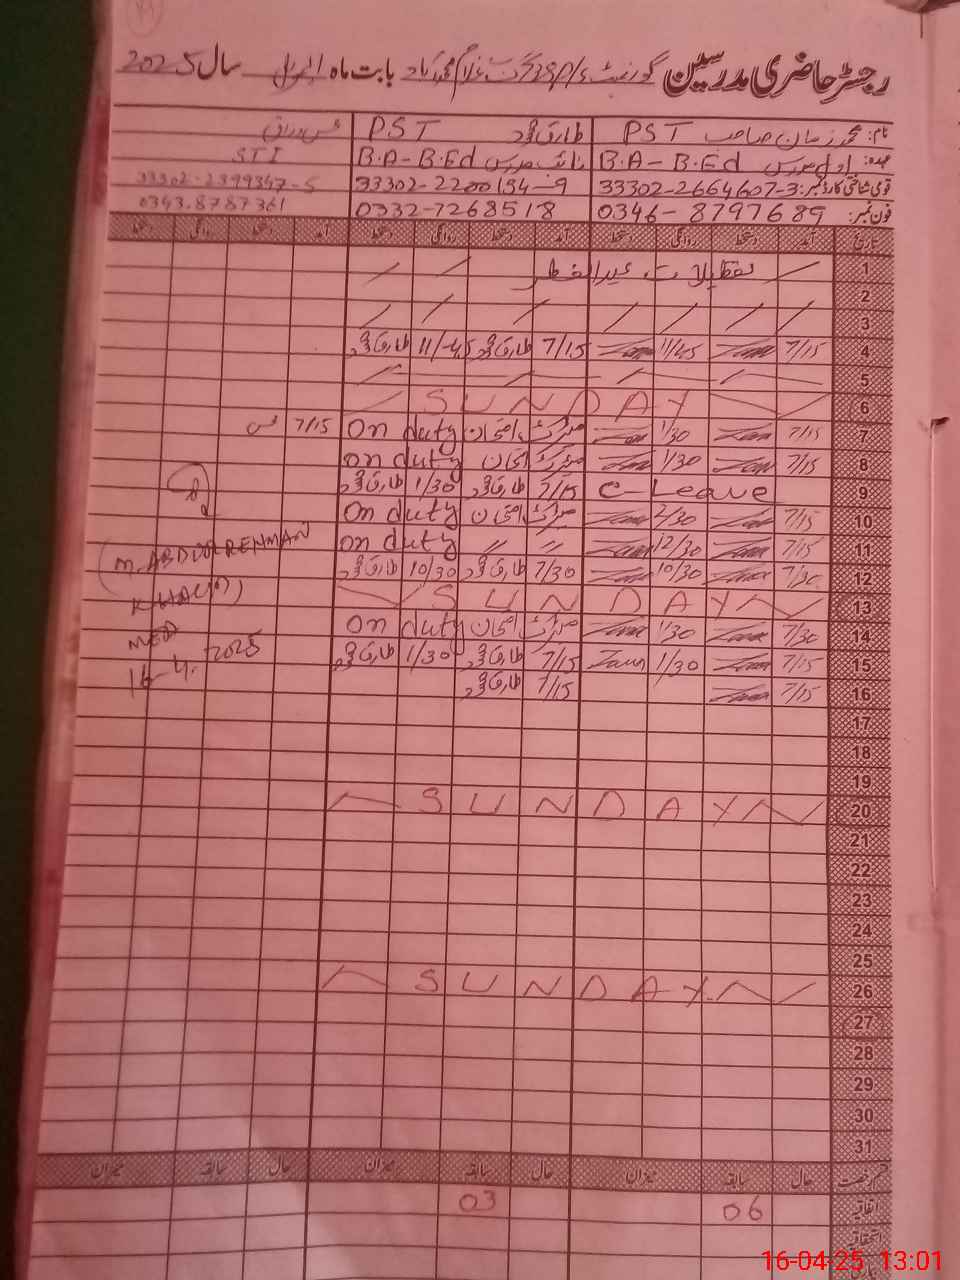 رجسٹر حاضری مدرسین گورنمنٹ بابت ماہ اپریل سال 2025
نام: محمد زمان صاحب PST
طارق محمود PST
عہدہ: اول مدرس B.A - B.Ed
نائب مدرس B.A - B.Ed
STI
قومی شناختی کارڈ نمبر: 33302-2664607-3
33302-2200154-9
33302-2399347-5
فون نمبر: 0346-8797689
0332-7268518
0343.8787361
تاریخ آمد دستخط روانگی دستخط آمد دستخط روانگی دستخط آمد دستخط روانگی دستخط
1 تعطیلات عیدالفطر
2
3
4 7/15 11/45 7/15 طارق محمود 11/45 طارق محمود
5
6 SUNDAY
7 7/15 1/30 میٹرک امتحان On duty 7/15
8 7/15 1/30 میٹرک امتحان on duty
9 C-Leave 7/15 طارق محمود 1/30 طارق محمود
10 7/15 2/30 میٹرک امتحان On duty
11 7/15 12/30 〃 〃 on duty
12 7/30 10/30 7/30 طارق محمود 10/30 طارق محمود
13 SUNDAY
14 7/30 1/30 میٹرک امتحان On duty
15 7/15 1/30 7/15 طارق محمود 1/30 طارق محمود
16 7/15 7/15 طارق محمود
17
18
19
20 SUNDAY
21
22
23
24
25
26 SUNDAY
27
28
29
30
31
(M. ABDUR REHMAN
16-4-2025
قسم رخصت حال سابقہ میزان حال سابقہ میزان حال سابقہ میزان
اتفاقیہ 06 03
استحقاقیہ
16-04-25 13:01